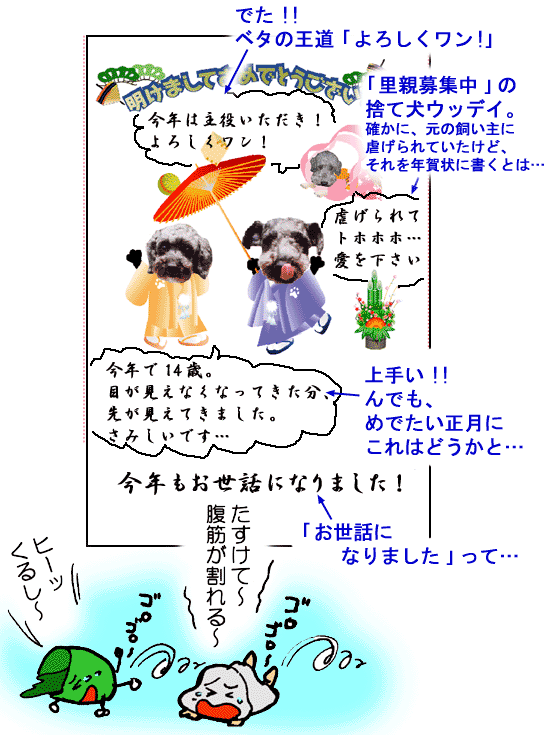 でた!!
ベタの王道「よろしくワン!」
明けましておめでとうござい
今年は主役いただき！
よろしくワン！
「里親募集中」の
捨て犬ウッデイ。
確かに、元の飼い主に
虐げられていたけど、
それを年賀状に書くとは…
虐げられて
トホホホ…
愛を下さい
今年で14歳。
目が見えなくなってきた分、
先が見えてきました。
さみしいです…
上手い!!
んでも、
めでたい正月に
これはどうかと…
今年もお世話になりました！
「お世話に
なりました」って…
たすけて～
腹筋が割れる～
ヒーッ
くるし～
ゴロ
ゴロ～
ゴロ
ゴロ～